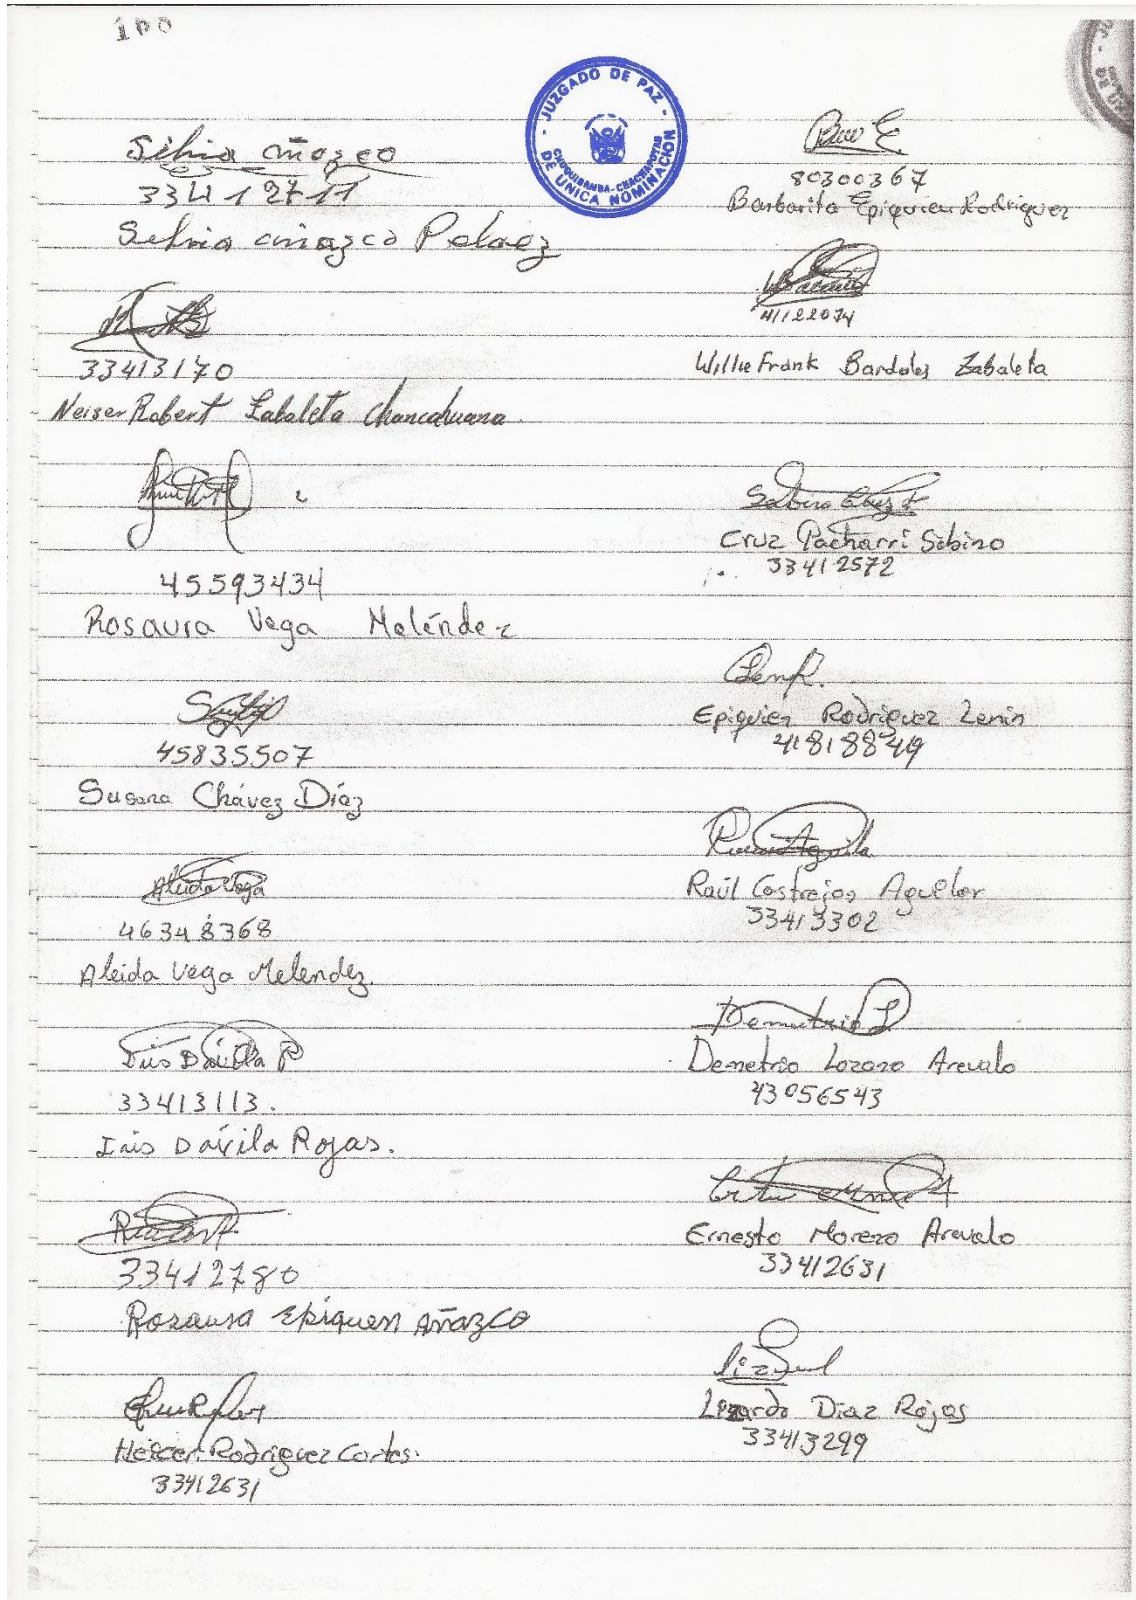 100
JUZGADO DE PAZ
CHUQUIBAMBA-CHACHAPOYAS
DE UNICA NOMINACION
Silvia añazco
33412717
Silvia añazco Pelaez
33413170
Neiser Robert Zabaleta Chancahuana
45593434
Rosaura Vega Meléndez
45835507
Susana Chávez Díaz
Aleida Vega
46348368
Aleida Vega Melendez.
Iris Dávila R
33413113.
Iris Dávila Rojas.
33412780
Rosaura Epiquen Añazco
Heiser Rodriguez Cortes.
33412631
80300367
Barbarita Epiquien Rodriguez
41122074
Willie Frank Bardales Zabaleta
Sabino Cruz P
Cruz Pacharri Sabino
33412572
Epiquien Rodriguez Lenin
41818849
Raúl Castrejos Aguilar
33413302
Demetrio L
Demetrio Lozano Arevalo
43056543
Ernesto Moreno Arevalo
33412631
Lizardo Diaz Rojas
33413299